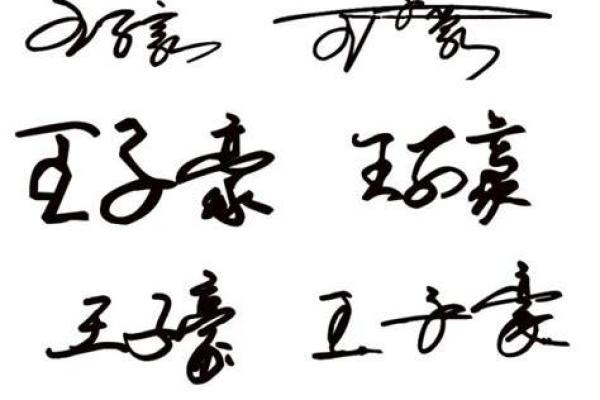 王子豪 王子豪
王子豪 王子豪
王子豪 王子豪